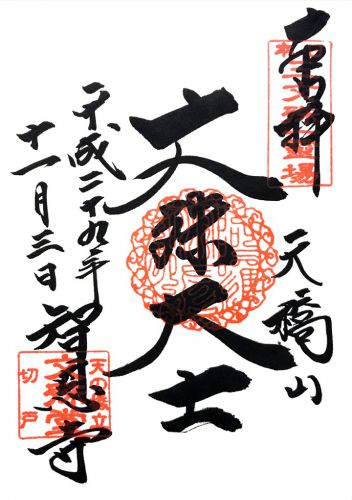 奉拝
天橋山
文珠大士
平成二十九年
十一月三日
智恩寺
天の橋立
文殊堂
切戸